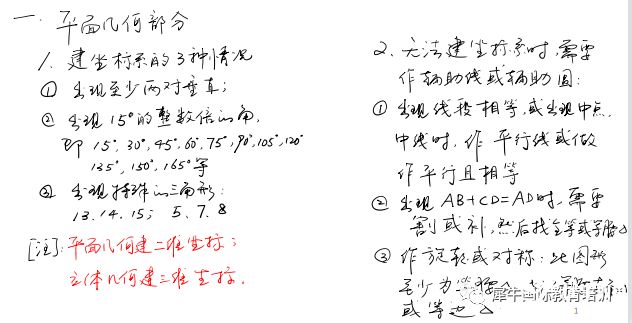 一、平面几何部分
1. 建坐标系的3种情况
① 出现至少两对垂直;
② 出现15°的整数倍的角,
即 15°, 30°, 45°, 60°, 75°, 90°, 105°, 120°
135°, 150°, 165° 等
③ 出现特殊的三角形:
13. 14. 15; 5、7、8
[注]: 平面几何建二维坐标;
立体几何建三维坐标.
2. 无法建坐标系时, 需要
作辅助线或辅助圆:
① 出现线段相等, 或出现中点,
中线时, 作平行线或做
作平行且相等
② 出现 AB+CD=AD时, 需要
割或补, 然后找全等或等腰△
③ 作旋转或对称: 此图形
至少为等腰
或等边△
犀牛国际教育培训
1